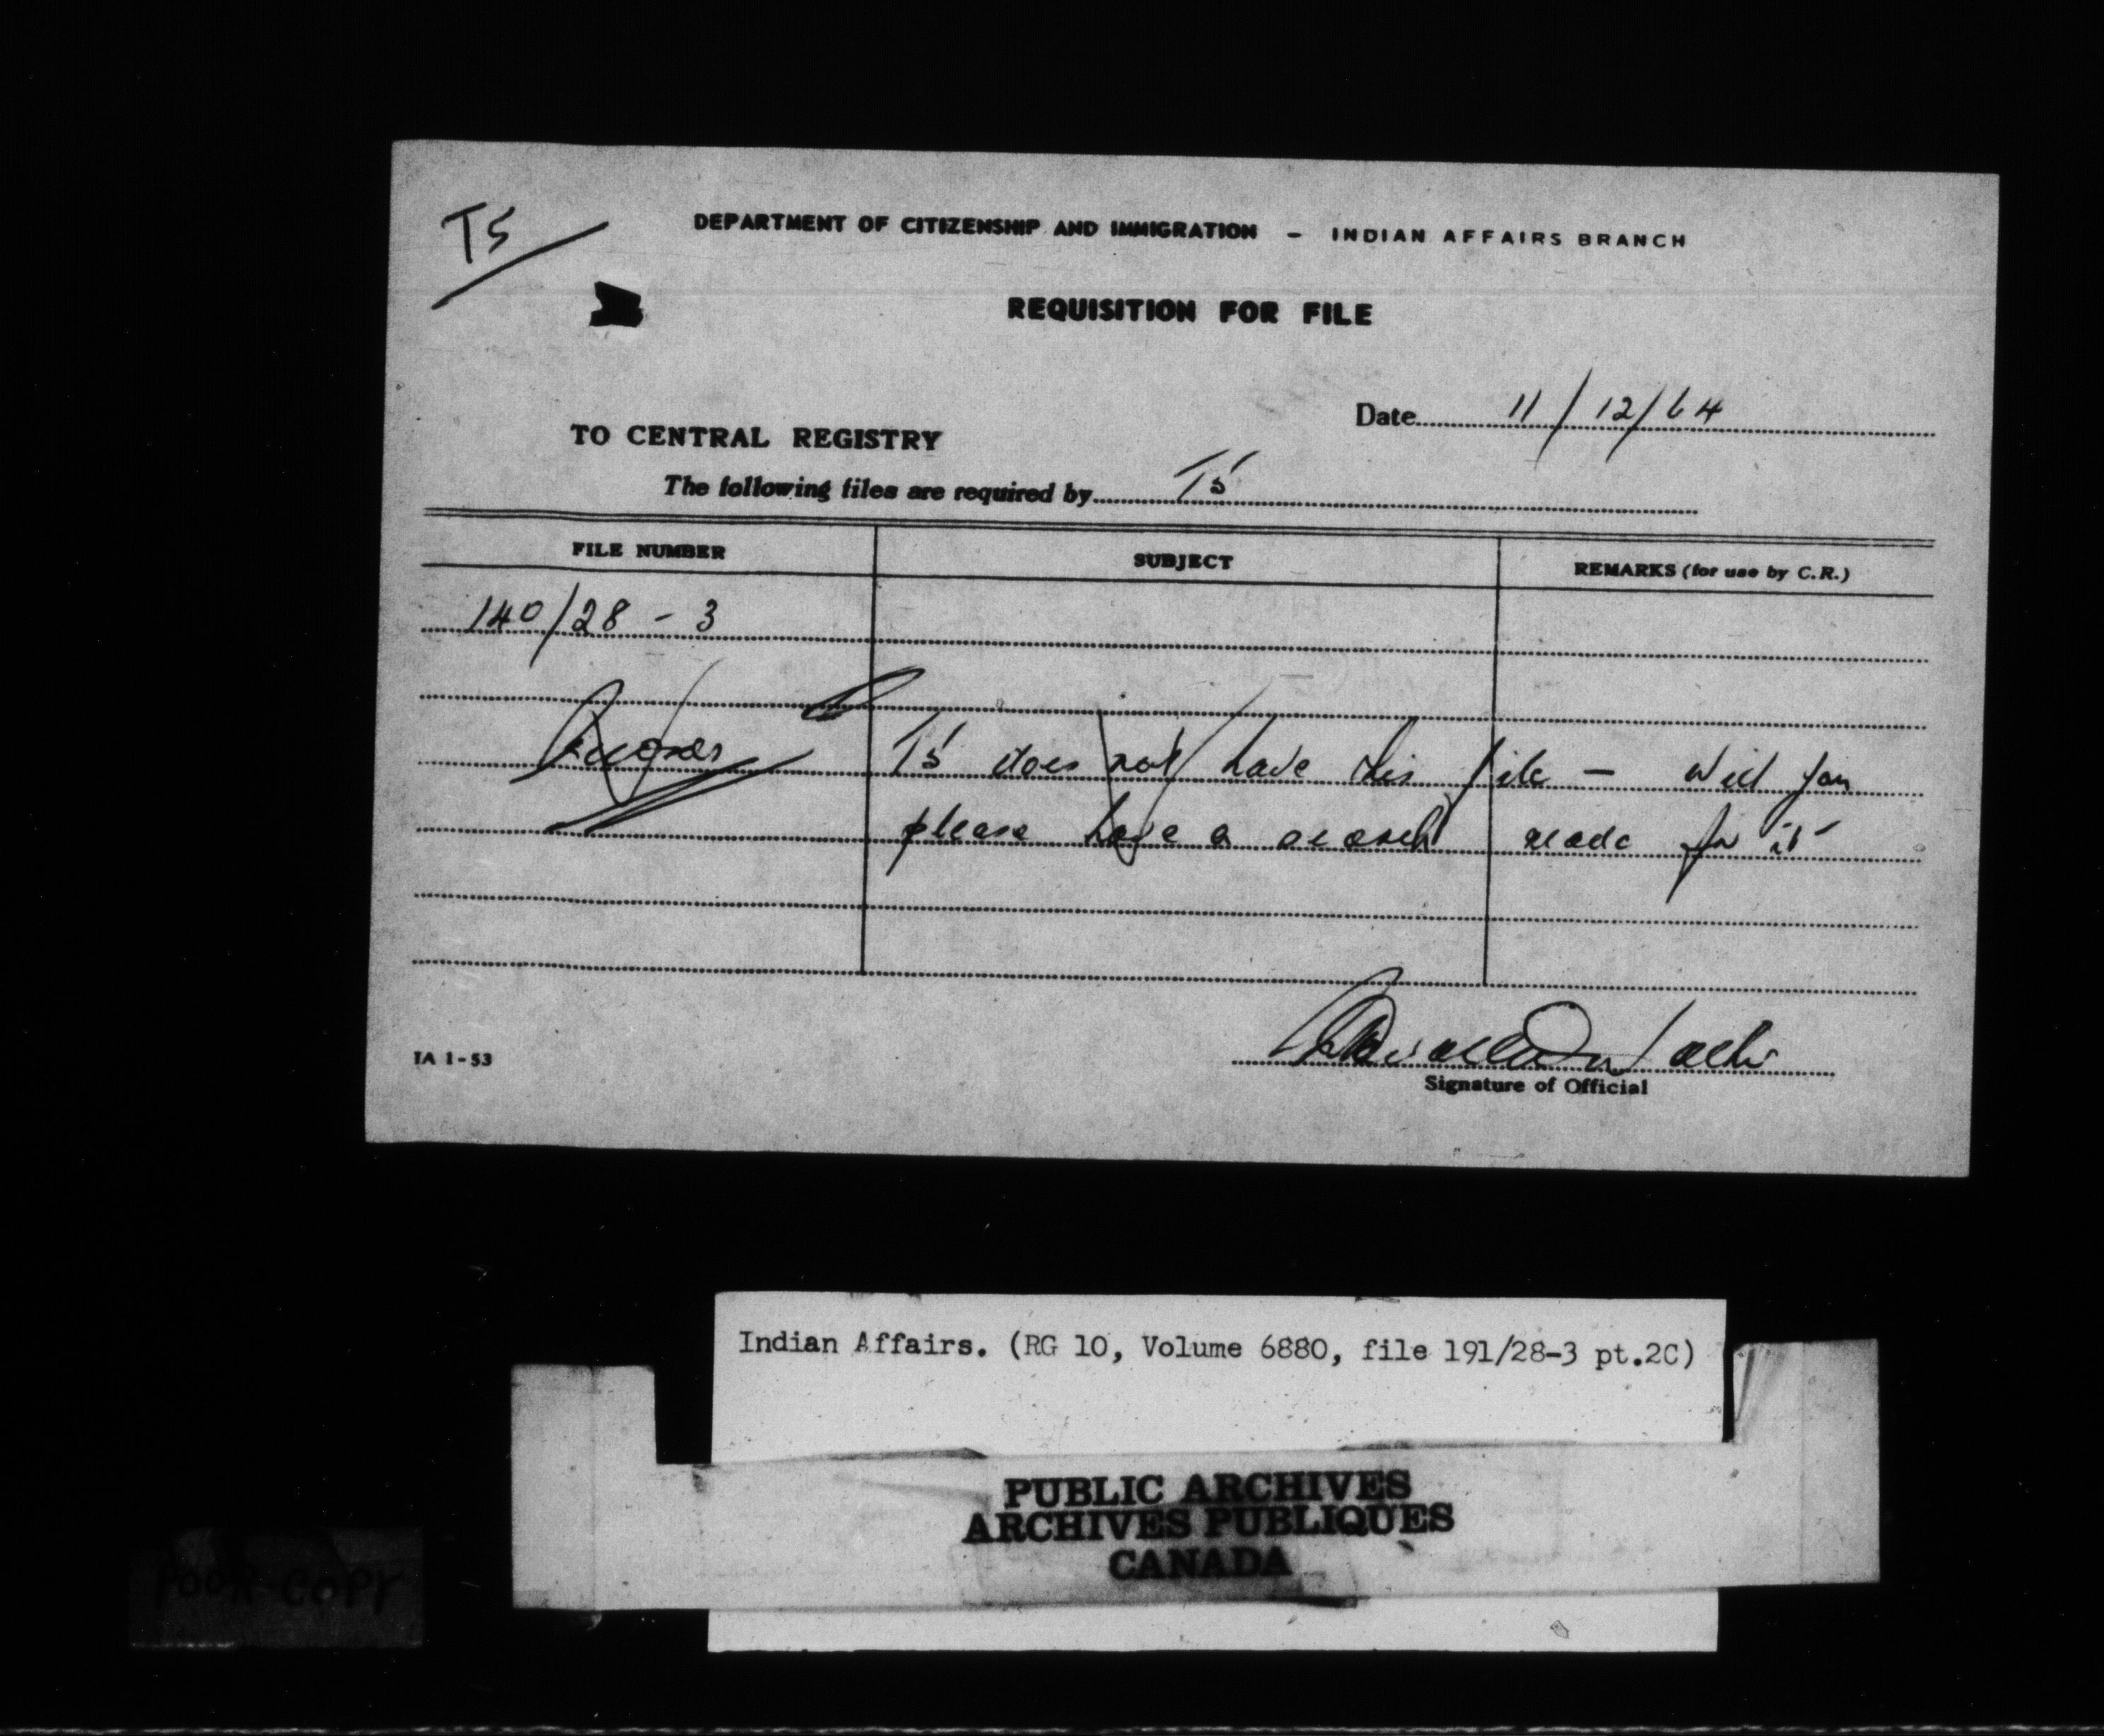 T5
DEPARTMENT OF CITIZENSHIP AND IMMIGRATION - INDIAN AFFAIRS BRANCH
REQUISITION FOR FILE
Date 11/12/64
TO CENTRAL REGISTRY
The following files are required by T5
FILE NUMBER SUBJECT REMARKS (for use by C.R.)
140/28 - 3
T5 does not have this file - will you
please have a search made for it
IA 1-53
Signature of Official
Indian Affairs. (RG 10, Volume 6880, file 191/28-3 pt.2C)
PUBLIC ARCHIVES
ARCHIVES PUBLIQUES
CANADA
POOR COPY